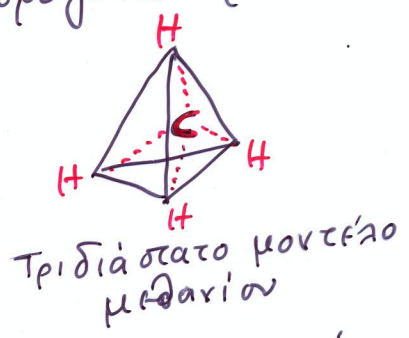 H
C
H
H
H
Τριδιάστατο μοντέλο
μεθανίου